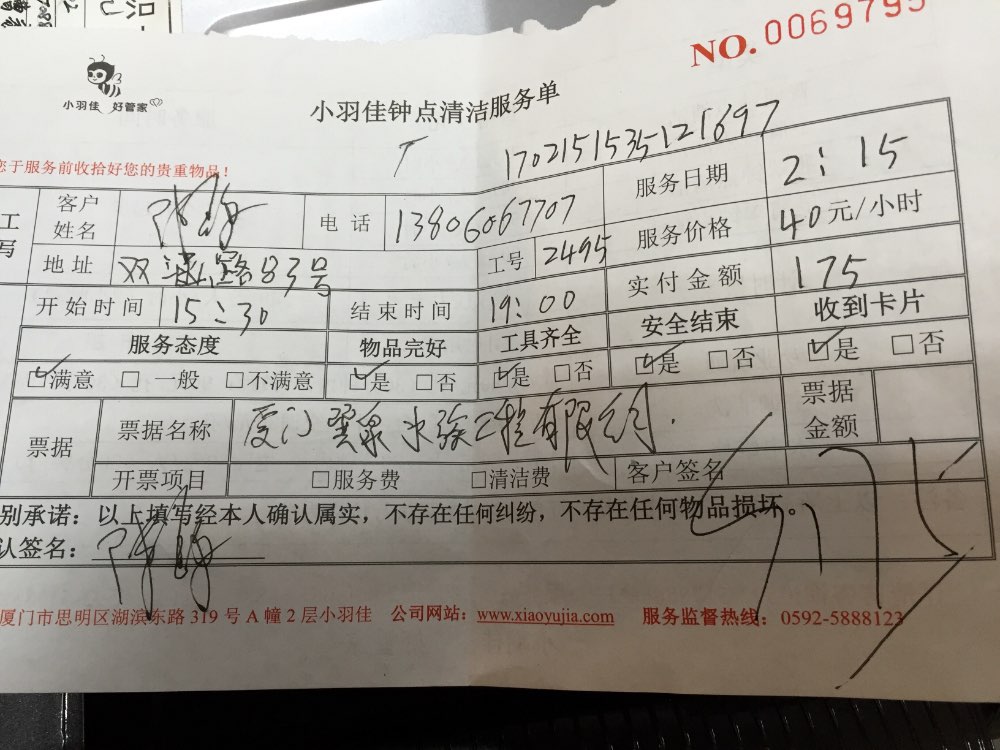 NO. 0069795
小羽佳 好管家
小羽佳钟点清洁服务单
1702151535121697
您于服务前收拾好您的贵重物品！
工
写
客户
姓名
电 话 13806067707 服务日期 2：15
地 址 路83号 工号 2495 服务价格 40元/小时
开 始 时 间 15：30 结 束 时 间 19：00 实 付 金 额 175
服务态度 物品完好 工具齐全 安全结束 收到卡片
☑满意 □ 一般 □不满意 ☑是 □否 ☑是 □否 ☑是 □否 ☑是 □否
票据 票据名称 厦门 水族工程有限公司. 票据
金额
开票项目 □服务费 □清洁费 客户签名
别承诺：以上填写经本人确认属实，不存在任何纠纷，不存在任何物品损坏。
认签名：
厦门市思明区湖滨东路 319 号 A 幢 2 层小羽佳 公司网站：www.xiaoyujia.com 服务监督热线：0592-5888123